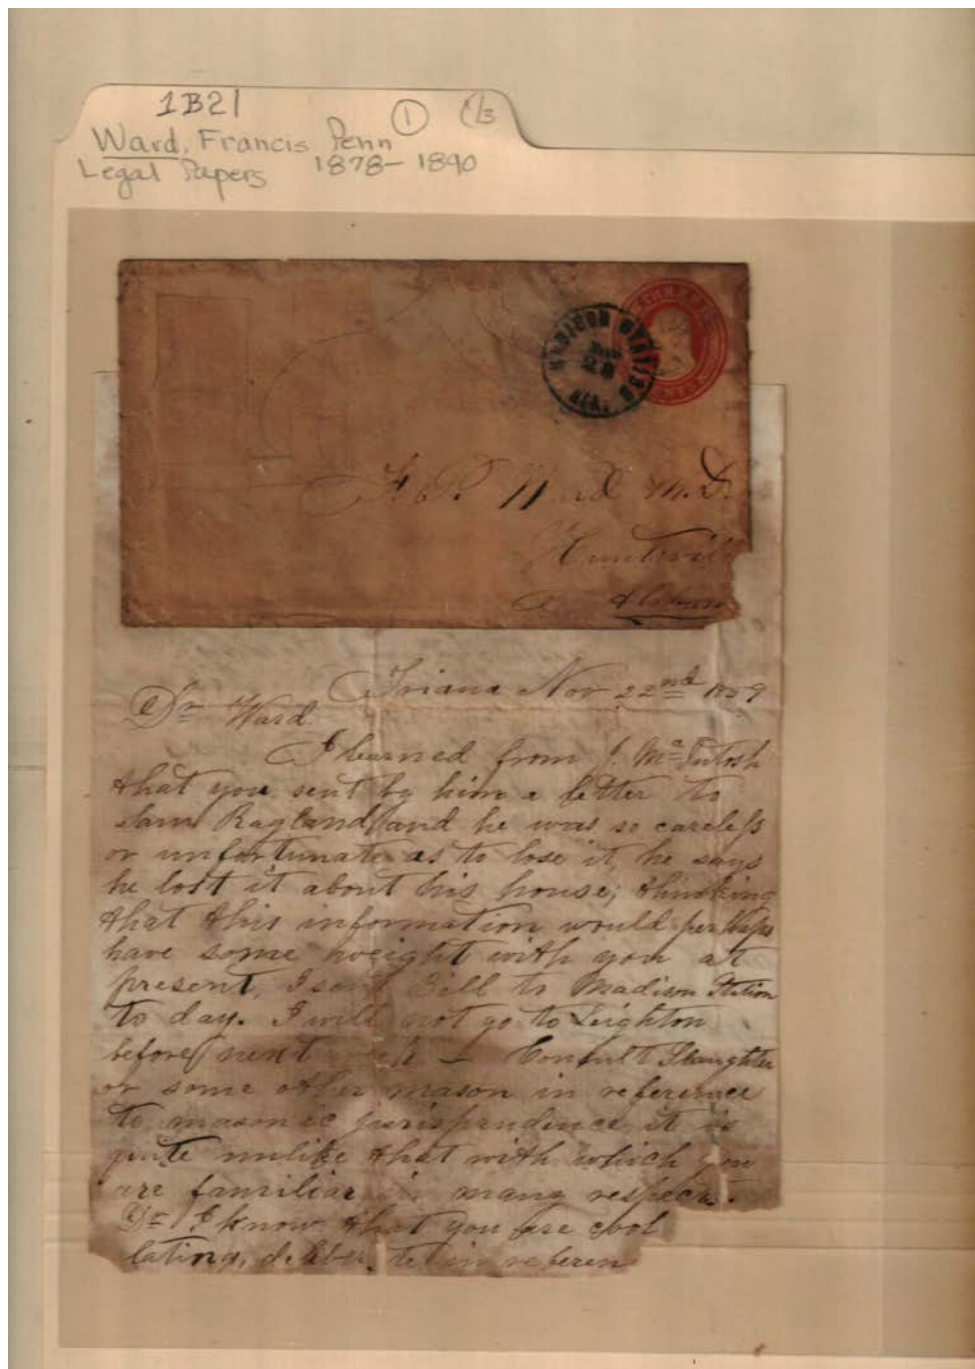 1B21
① 1/3
Ward, Francis Penn
Legal Papers 1878-1890
THREE
MADISON STATION
28
ALA.
F. P. Ward M.D.
Huntsvil
Alabam
Triana Nov 22nd 1859
Dr Ward
I learned from J. McIntosh
that you sent by him a letter to
Sam Ragland and he was so careless
or unfortunate as to lose it, he says
he lost it about his house; thinking
that this information would perhaps
have some weight with you at
present, I sent Bill to Madison Station
to day. I will not go to Leighton
before next week - Consult Slaughter
or some other mason in reference
to masonic jurisprudence, it is
quite unlike that with which you
are familiar in many respects.
Dr I know that you are cool
lating, deliber te in referen